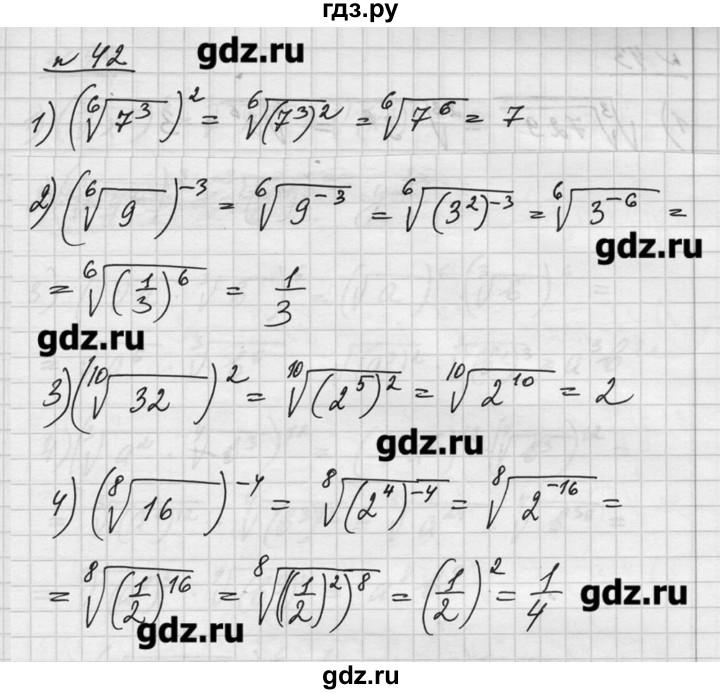 гдз.ру
№ 42
gdz.ru
1) (⁶√7³)² = ⁶√(7³)² = ⁶√7⁶ = 7
2) (⁶√9)⁻³ = ⁶√9⁻³ = ⁶√(3²)⁻³ = ⁶√3⁻⁶ =
gdz.ru
= ⁶√(1/3)⁶ = 1/3
gdz.ru
3) (¹⁰√32)² = ¹⁰√(2⁵)² = ¹⁰√2¹⁰ = 2
gdz.ru
4) (⁸√16)⁻⁴ = ⁸√(2⁴)⁻⁴ = ⁸√2⁻¹⁶ =
= ⁸√(1/2)¹⁶ = ⁸√((1/2)²)⁸ = (1/2)² = 1/4
gdz.ru
gdz.ru
gdz.ru